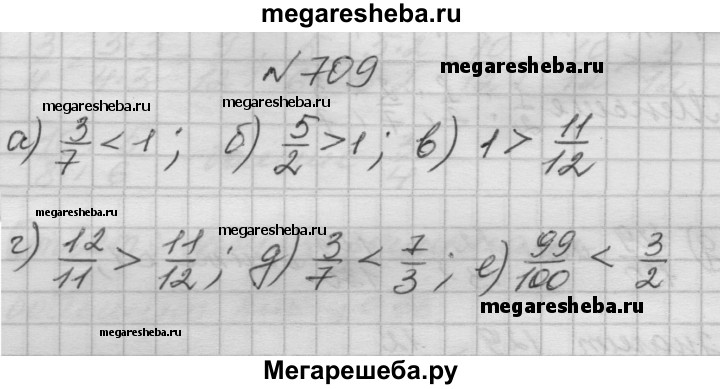 megaresheba.ru
№ 709
megaresheba.ru
megaresheba.ru megaresheba.ru
а) 3/7 < 1 ; б) 5/2 > 1 ; в) 1 > 11/12
megaresheba.ru megaresheba.ru
г) 12/11 > 11/12 ; д) 3/7 < 7/3 ; е) 99/100 < 3/2
megaresheba.ru
megaresheba.ru
Мегарешеба.ру